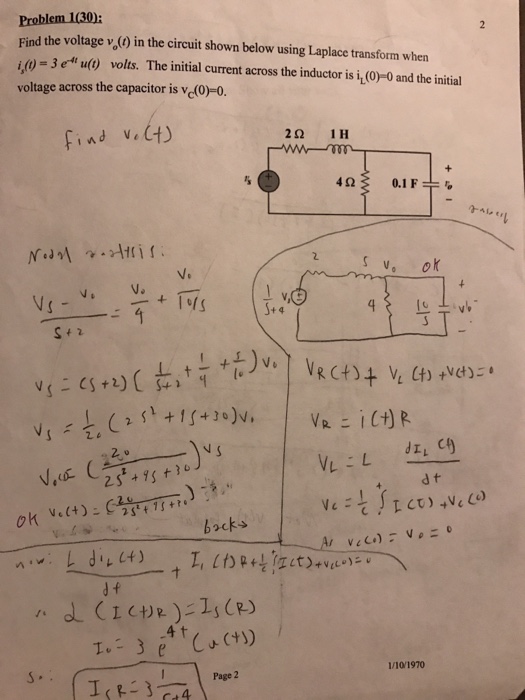 Problem 1(30):
2
Find the voltage vₒ(t) in the circuit shown below using Laplace transform when
iₛ(t) = 3 e⁻⁴ᵗ u(t) volts. The initial current across the inductor is i_L(0)=0 and the initial
voltage across the capacitor is v_C(0)=0.
find Vₒ(t)
2 Ω 1 H
vₛ 4 Ω 0.1 F + vₒ -
Nodal
(Vs - Vₒ)/(s+2) = Vₒ/4 + Vₒ/(10/s)
2 s Vₒ OK
1/(s+4) Vs 4 10/s + Vo -
Vs = (s+2)(1/(s+2) + 1/4 + s/10) Vₒ
Vs = 1/20 (2s² + 9s + 30) Vₒ
(20/(2s² + 9s + 30)) Vs
OK Vₒ(t) = (20/(2s² + 9s + 30))
back
V_R(t) + V_L(t) + V(t) = 0
V_R = i(t) R
V_L = L dI_L(t)/dt
Vc = 1/c ∫ I(τ) + Vc(o)
As Vc(o) = Vₒ = 0
now: L di_L(t)/dt + I_L(t) R + 1/c ∫ I(t) + v_c(o) = 0
L (I(t)R) = Is(R)
Iₒ = 3 e⁻⁴ᵗ (u(t))
So:
IsR = 3 1/(s+4)
Page 2
1/10/1970